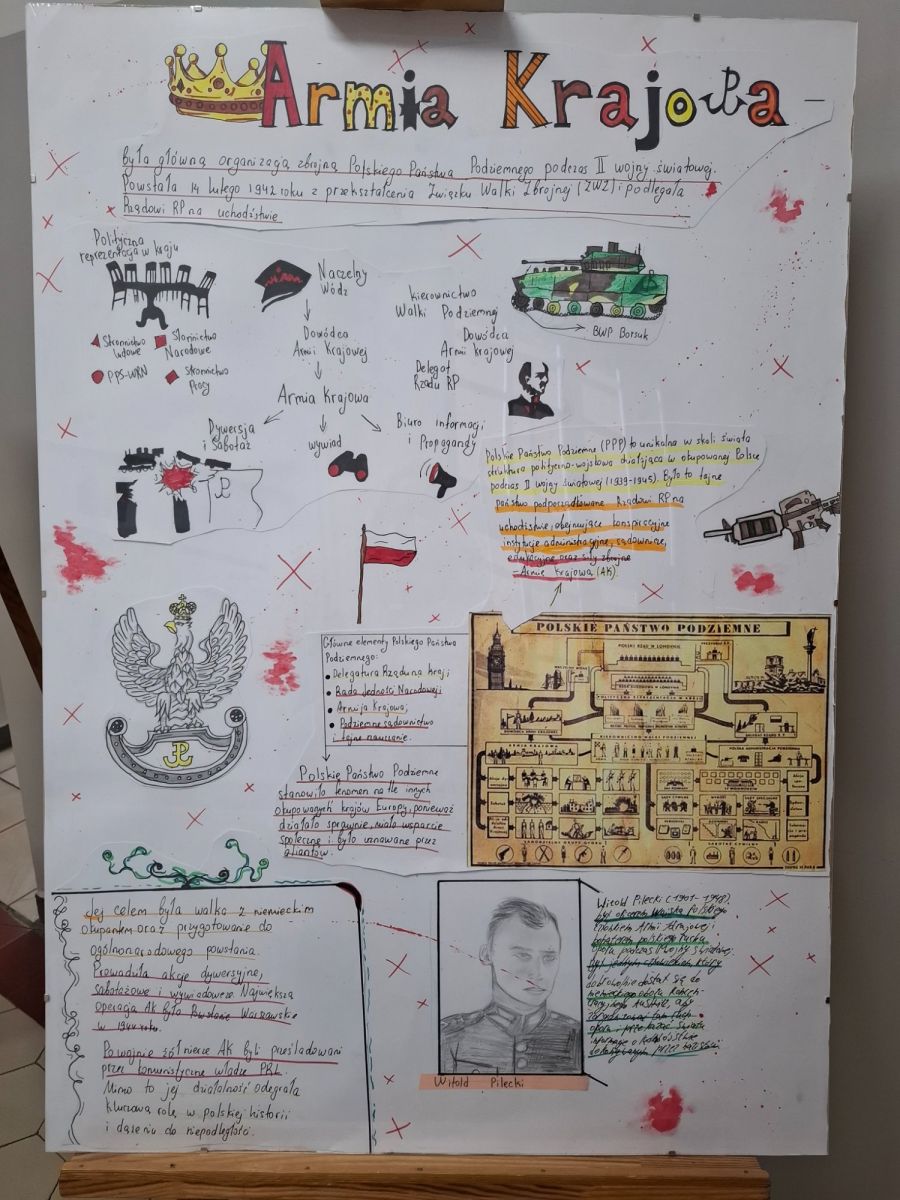 Armia Krajowa -
była główną organizacją zbrojną Polskiego Państwa Podziemnego podczas II wojny światowej.
Powstała 14 lutego 1942 roku z przekształcenia Związku Walki Zbrojnej (ZWZ) i podlegała
Rządowi RP na uchodźstwie
Polityczna
reprezentacja w kraju
Stronnictwo
Ludowe
Stronnictwo
Narodowe
PPS-WRN
Stronnictwo
Pracy
Naczelny
Wódz
Dowódca
Armii Krajowej
Armia Krajowa
Dywersja
i Sabotaż
wywiad
Biuro informacji
i Propagandy
Kierownictwo
Walki Podziemnej
Dowódca
Armii Krajowej
Delegat
Rządu RP
BWP Borsuk
Polskie Państwo Podziemne (PPP) to unikalna w skali świata
struktura polityczno-wojskowa działająca w okupowanej Polsce
podczas II wojny światowej (1939-1945). Było to tajne
państwo podporządkowane Rządowi RP na
uchodźstwie, obejmujące konspiracyjne
instytucje administracyjne, sądownicze,
edukacyjne oraz siły zbrojne
- Armię Krajową (AK).
Główne elementy Polskiego Państwa
Podziemnego:
• Delegatura Rządu na Kraj;
• Rada Jedności Narodowej;
• Armija Krajowa;
• Podziemne sądownictwo
i tajne nauczanie.
Polskie Państwo Podziemne
stanowiło fenomen na tle innych
okupowanych krajów Europy, ponieważ
działało sprawnie, miało wsparcie
społeczne i było uznawane przez
aliantów.
POLSKIE PAŃSTWO PODZIEMNE
POLSKI RZĄD W LONDYNIE
Jej celem była walka z niemieckim
okupantem oraz przygotowanie do
ogólnonarodowego powstania.
Prowadziła akcje dywersyjne,
sabotażowe i wywiadowcze. Największą
operacją AK było Powstanie Warszawskie
w 1944 roku.
Po wojnie żołnierze AK byli prześladowani
przez komunistyczne władze PRL.
Mimo to jej działalność odegrała
kluczową rolę w polskiej historii
i dążeniu do niepodległości.
Witold Pilecki
Witold Pilecki (1901-1948)
był oficerem Wojska Polskiego
żołnierzem Armii Krajowej i
bohaterem polskiego ruchu
oporu podczas II wojny światowej.
był jedynym człowiekiem, który
dobrowolnie dostał się do
niemieckiego obozu
Auschwitz, aby
ruch
oporu i przekazać światu
informacje o